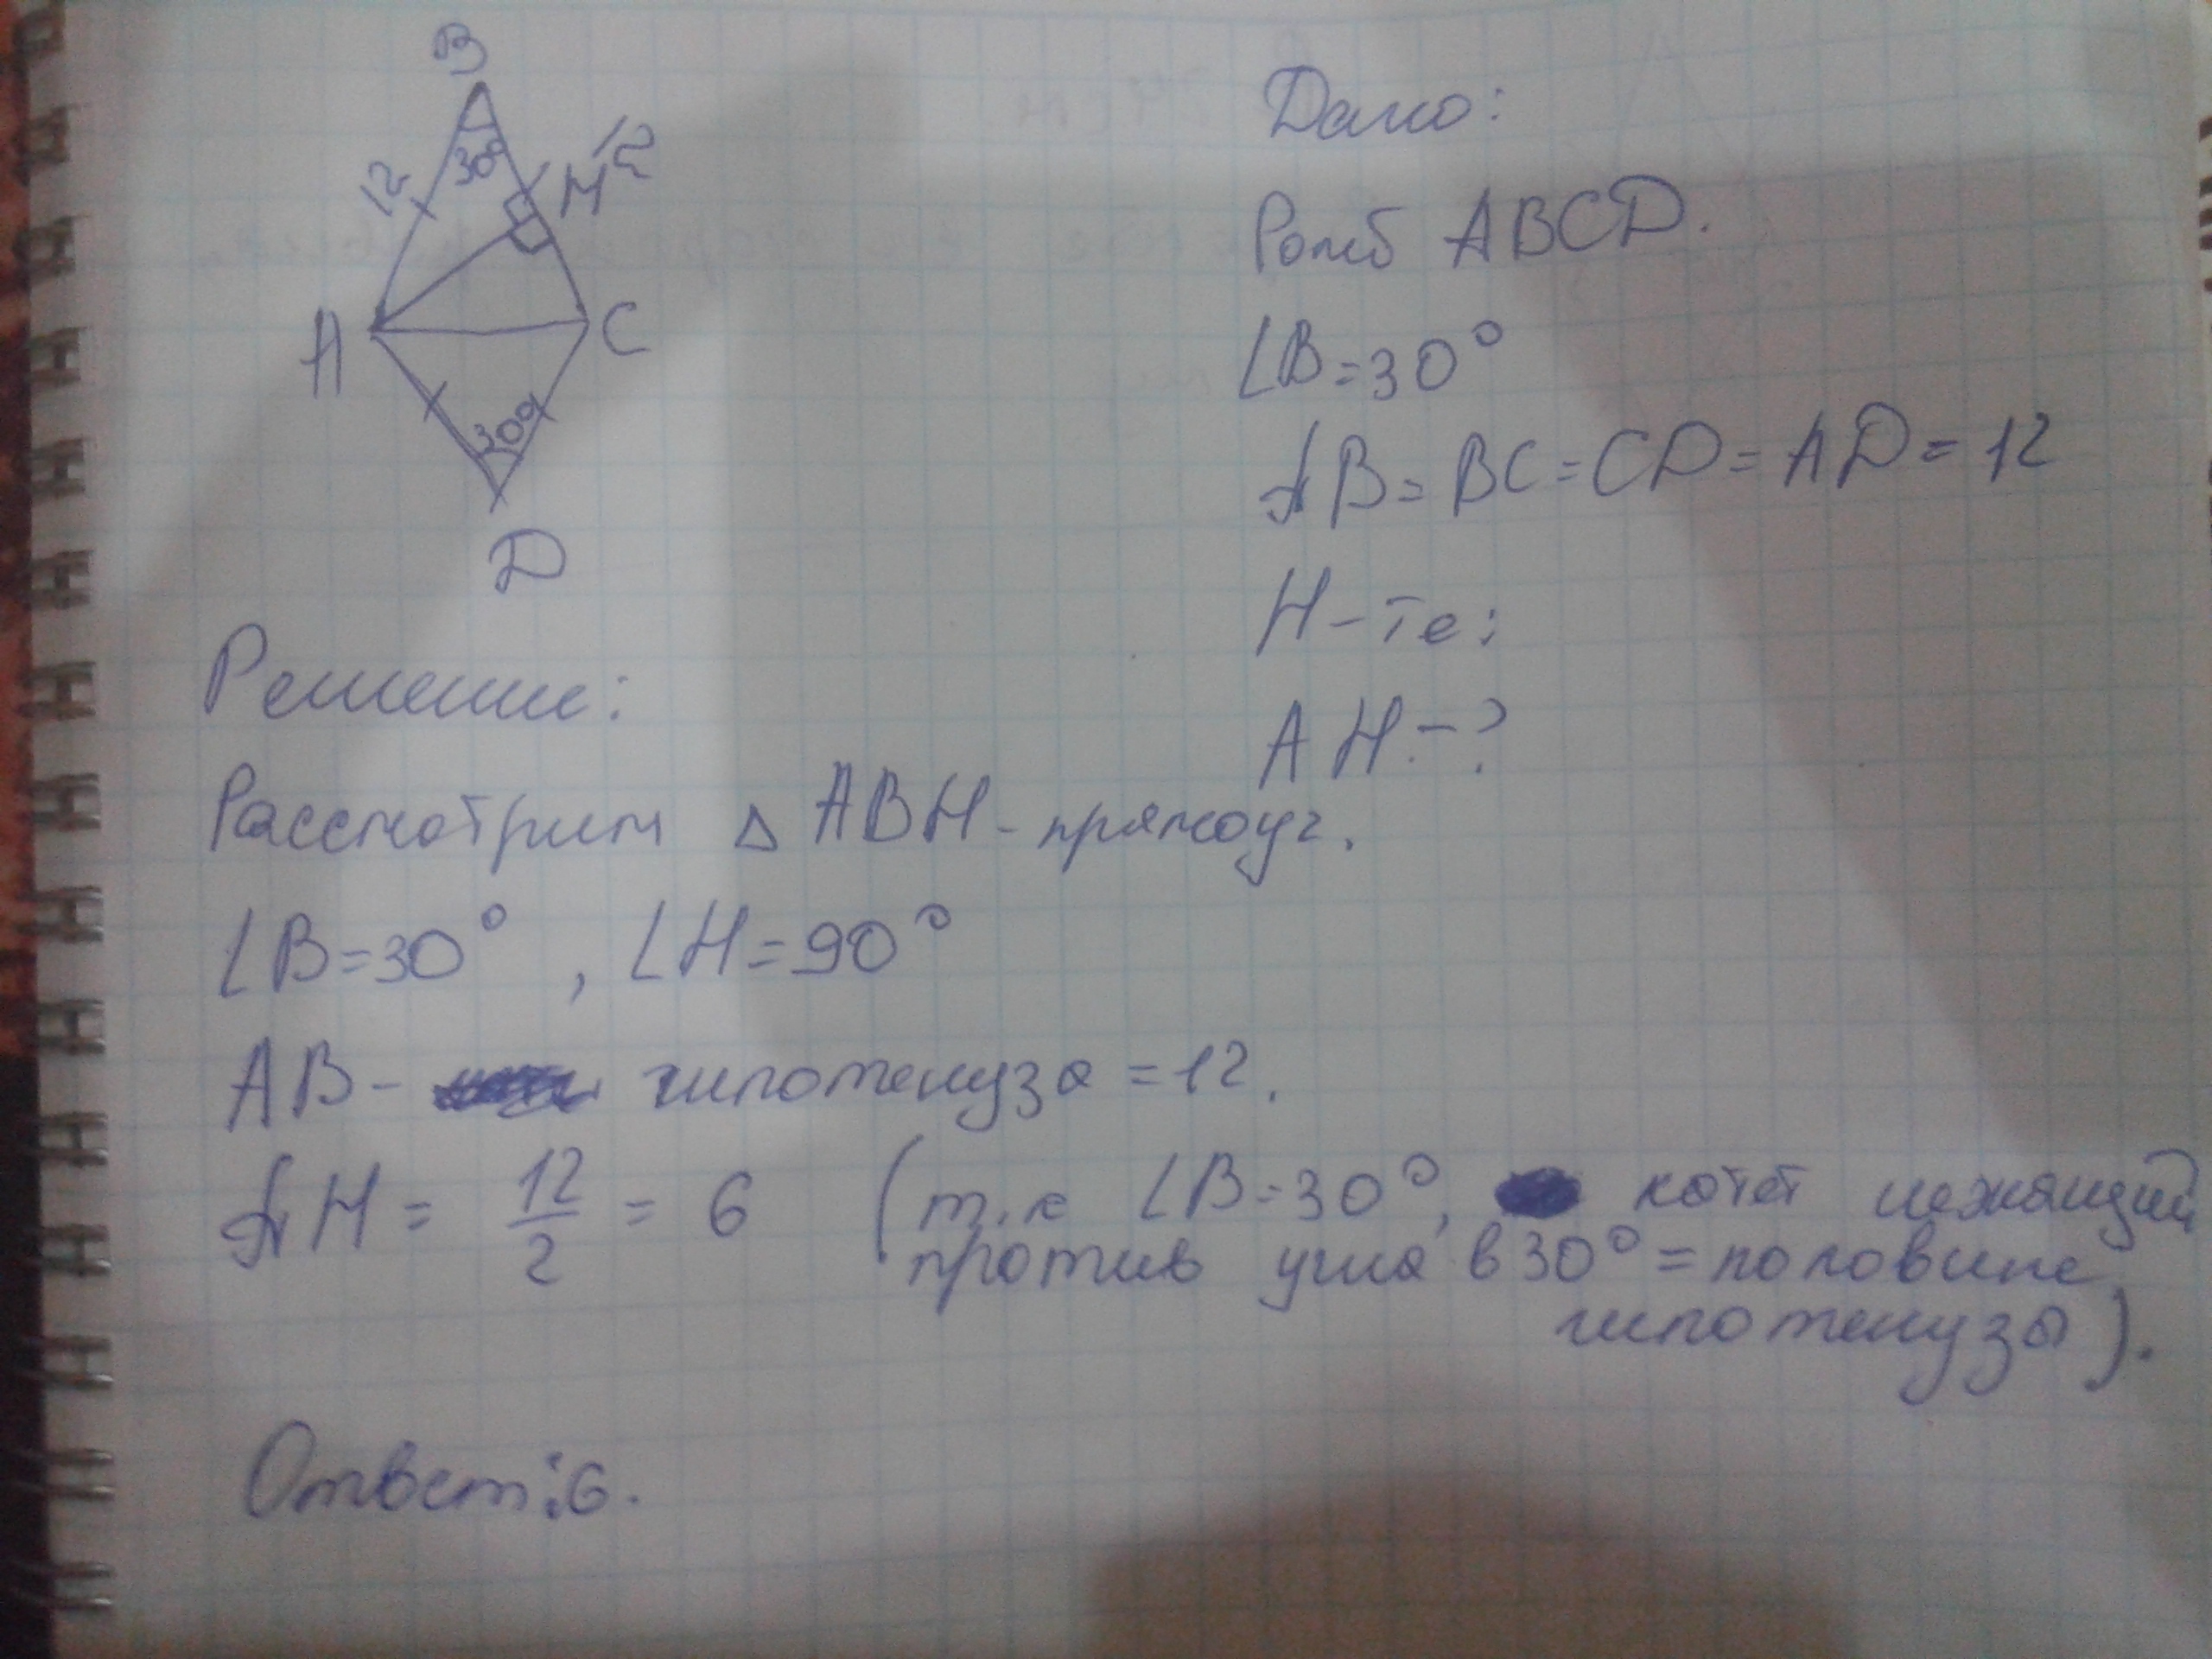 B
12
30°
H
12
A
C
30°
D
Дано:
Ромб ABCD.
∠B=30°
AB=BC=CD=AD=12
Н-те:
AH-?
Решение:
Рассмотрим △ ABH-прямоуг.
∠B=30°, ∠H=90°
AB- гипотенуза =12.
AH = 12/2 = 6 (т.к ∠B=30°, катет лежащий
против угла в 30° = половине
гипотенузы).
Ответ:6.